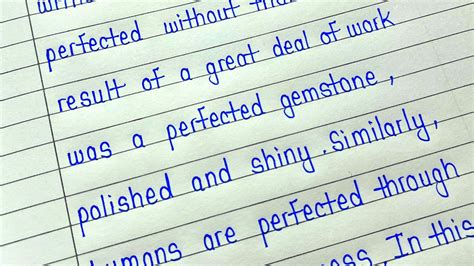 perfected without
result of a great deal of work
was a perfected gemstone,
polished and shiny. Similarly,
humans are perfected through
In this